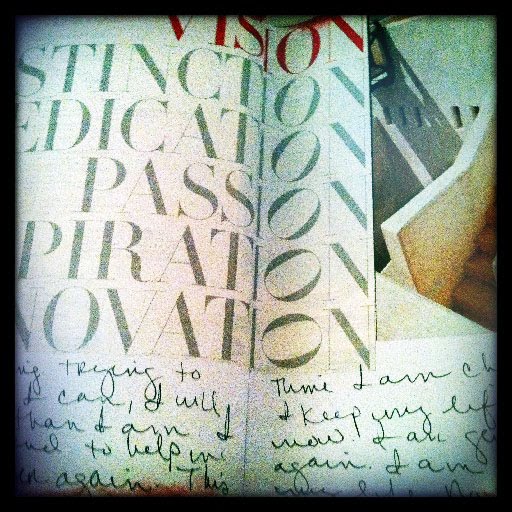 VISION
STINCTION
EDICATION
PASSION
PIRATION
NOVATION
ng trying to
I can, I will
than I am I
nd to help
again. This
Think I am ch
I keep my lif
now. I am ge
again. I am